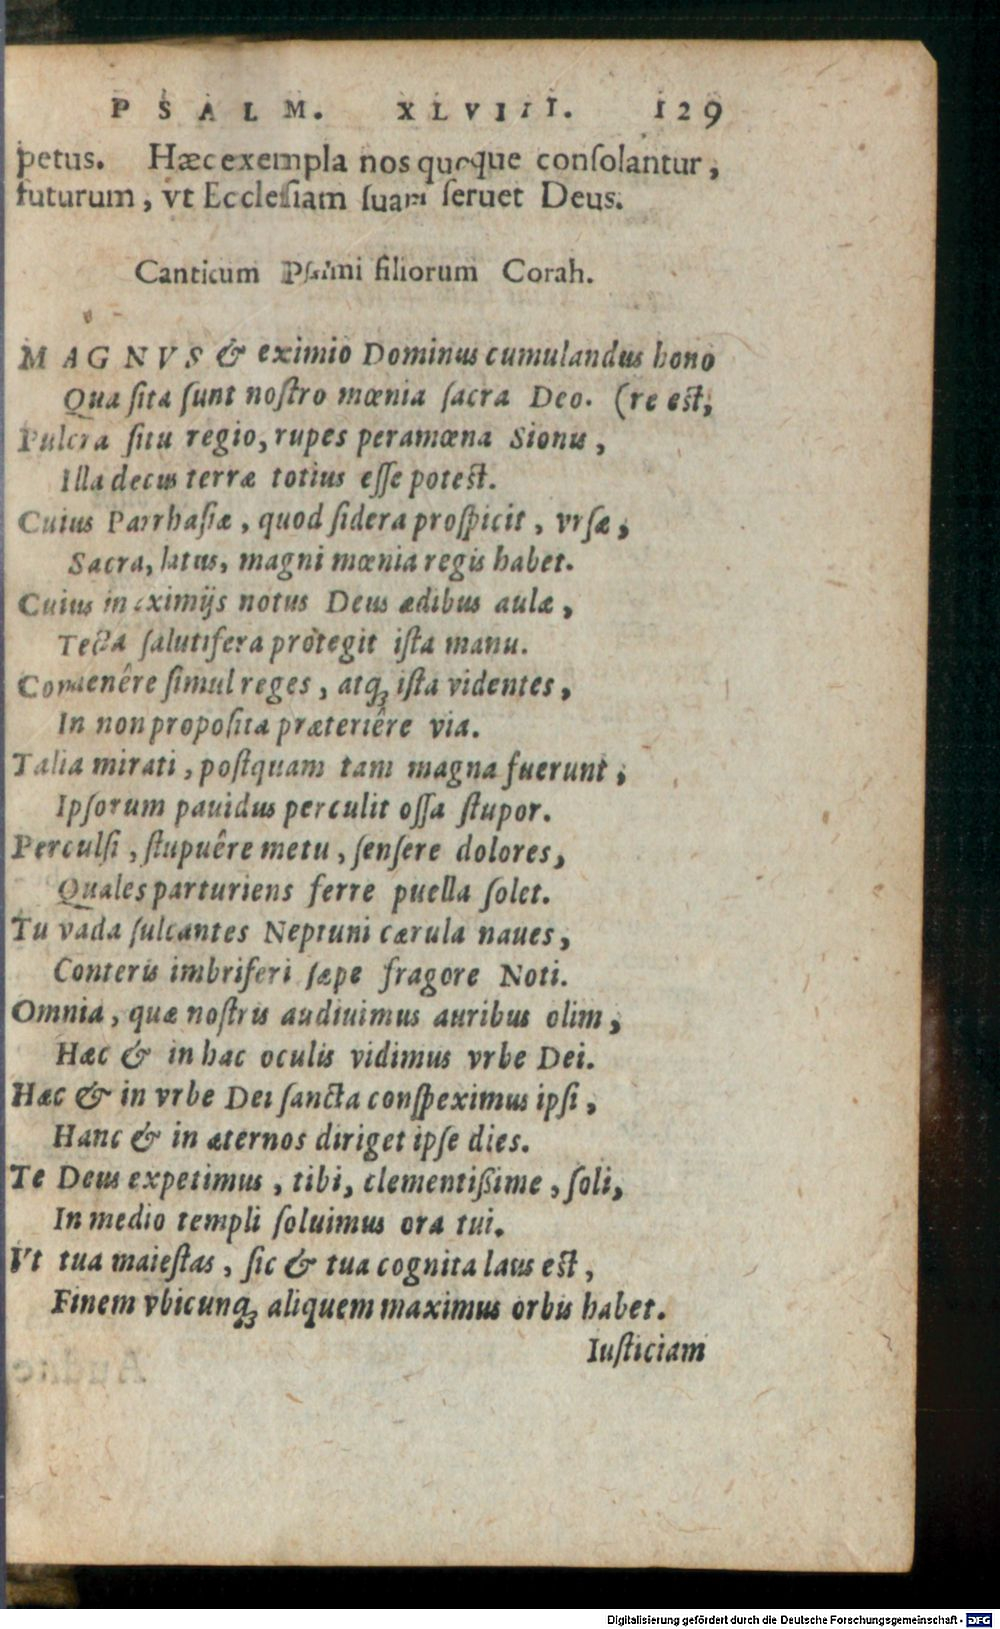 PSALM. XLVIII. 129
petus. Hæc exempla nos quoque conſolantur,
futurum, vt Eccleſiam ſuam ſeruet Deus.
Canticum Pſalmi filiorum Corah.
MAGNVS & eximio Dominus cumulandus hono
Qua ſita ſunt noſtro mœnia ſacra Deo. (re eſt,
Pulcra ſitu regio, rupes peramœna Sionis,
Illa decus terræ totius eſſe poteſt.
Cuius Parrhaſiæ, quod ſidera proſpicit, vrſæ,
Sacra, latus, magni mœnia regis habet.
Cuius in eximijs notus Deus ædibus aulæ,
Tecta ſalutifera protegit iſta manu.
Conuenêre ſimul reges, atq; iſta videntes,
In non propoſita præteriêre via.
Talia mirati, poſtquam tam magna fuerunt,
Ipſorum pauidus perculit oſſa ſtupor.
Perculſi, ſtupuêre metu, ſenſere dolores,
Quales parturiens ferre puella ſolet.
Tu vada ſulcantes Neptuni cærula naues,
Conteris imbriferi ſæpe fragore Noti.
Omnia, quæ noſtris audiuimus auribus olim,
Hæc & in hac oculis vidimus vrbe Dei.
Hæc & in vrbe Dei ſancta conſpeximus ipſi,
Hanc & in æternos diriget ipſe dies.
Te Deus expetimus, tibi, clementißime, ſoli,
In medio templi ſoluimus ora tui.
Vt tua maieſtas, ſic & tua cognita laus eſt,
Finem vbicunq; aliquem maximus orbis habet.
Iuſticiam
Digitalisierung gefördert durch die Deutsche Forschungsgemeinschaft - DFG